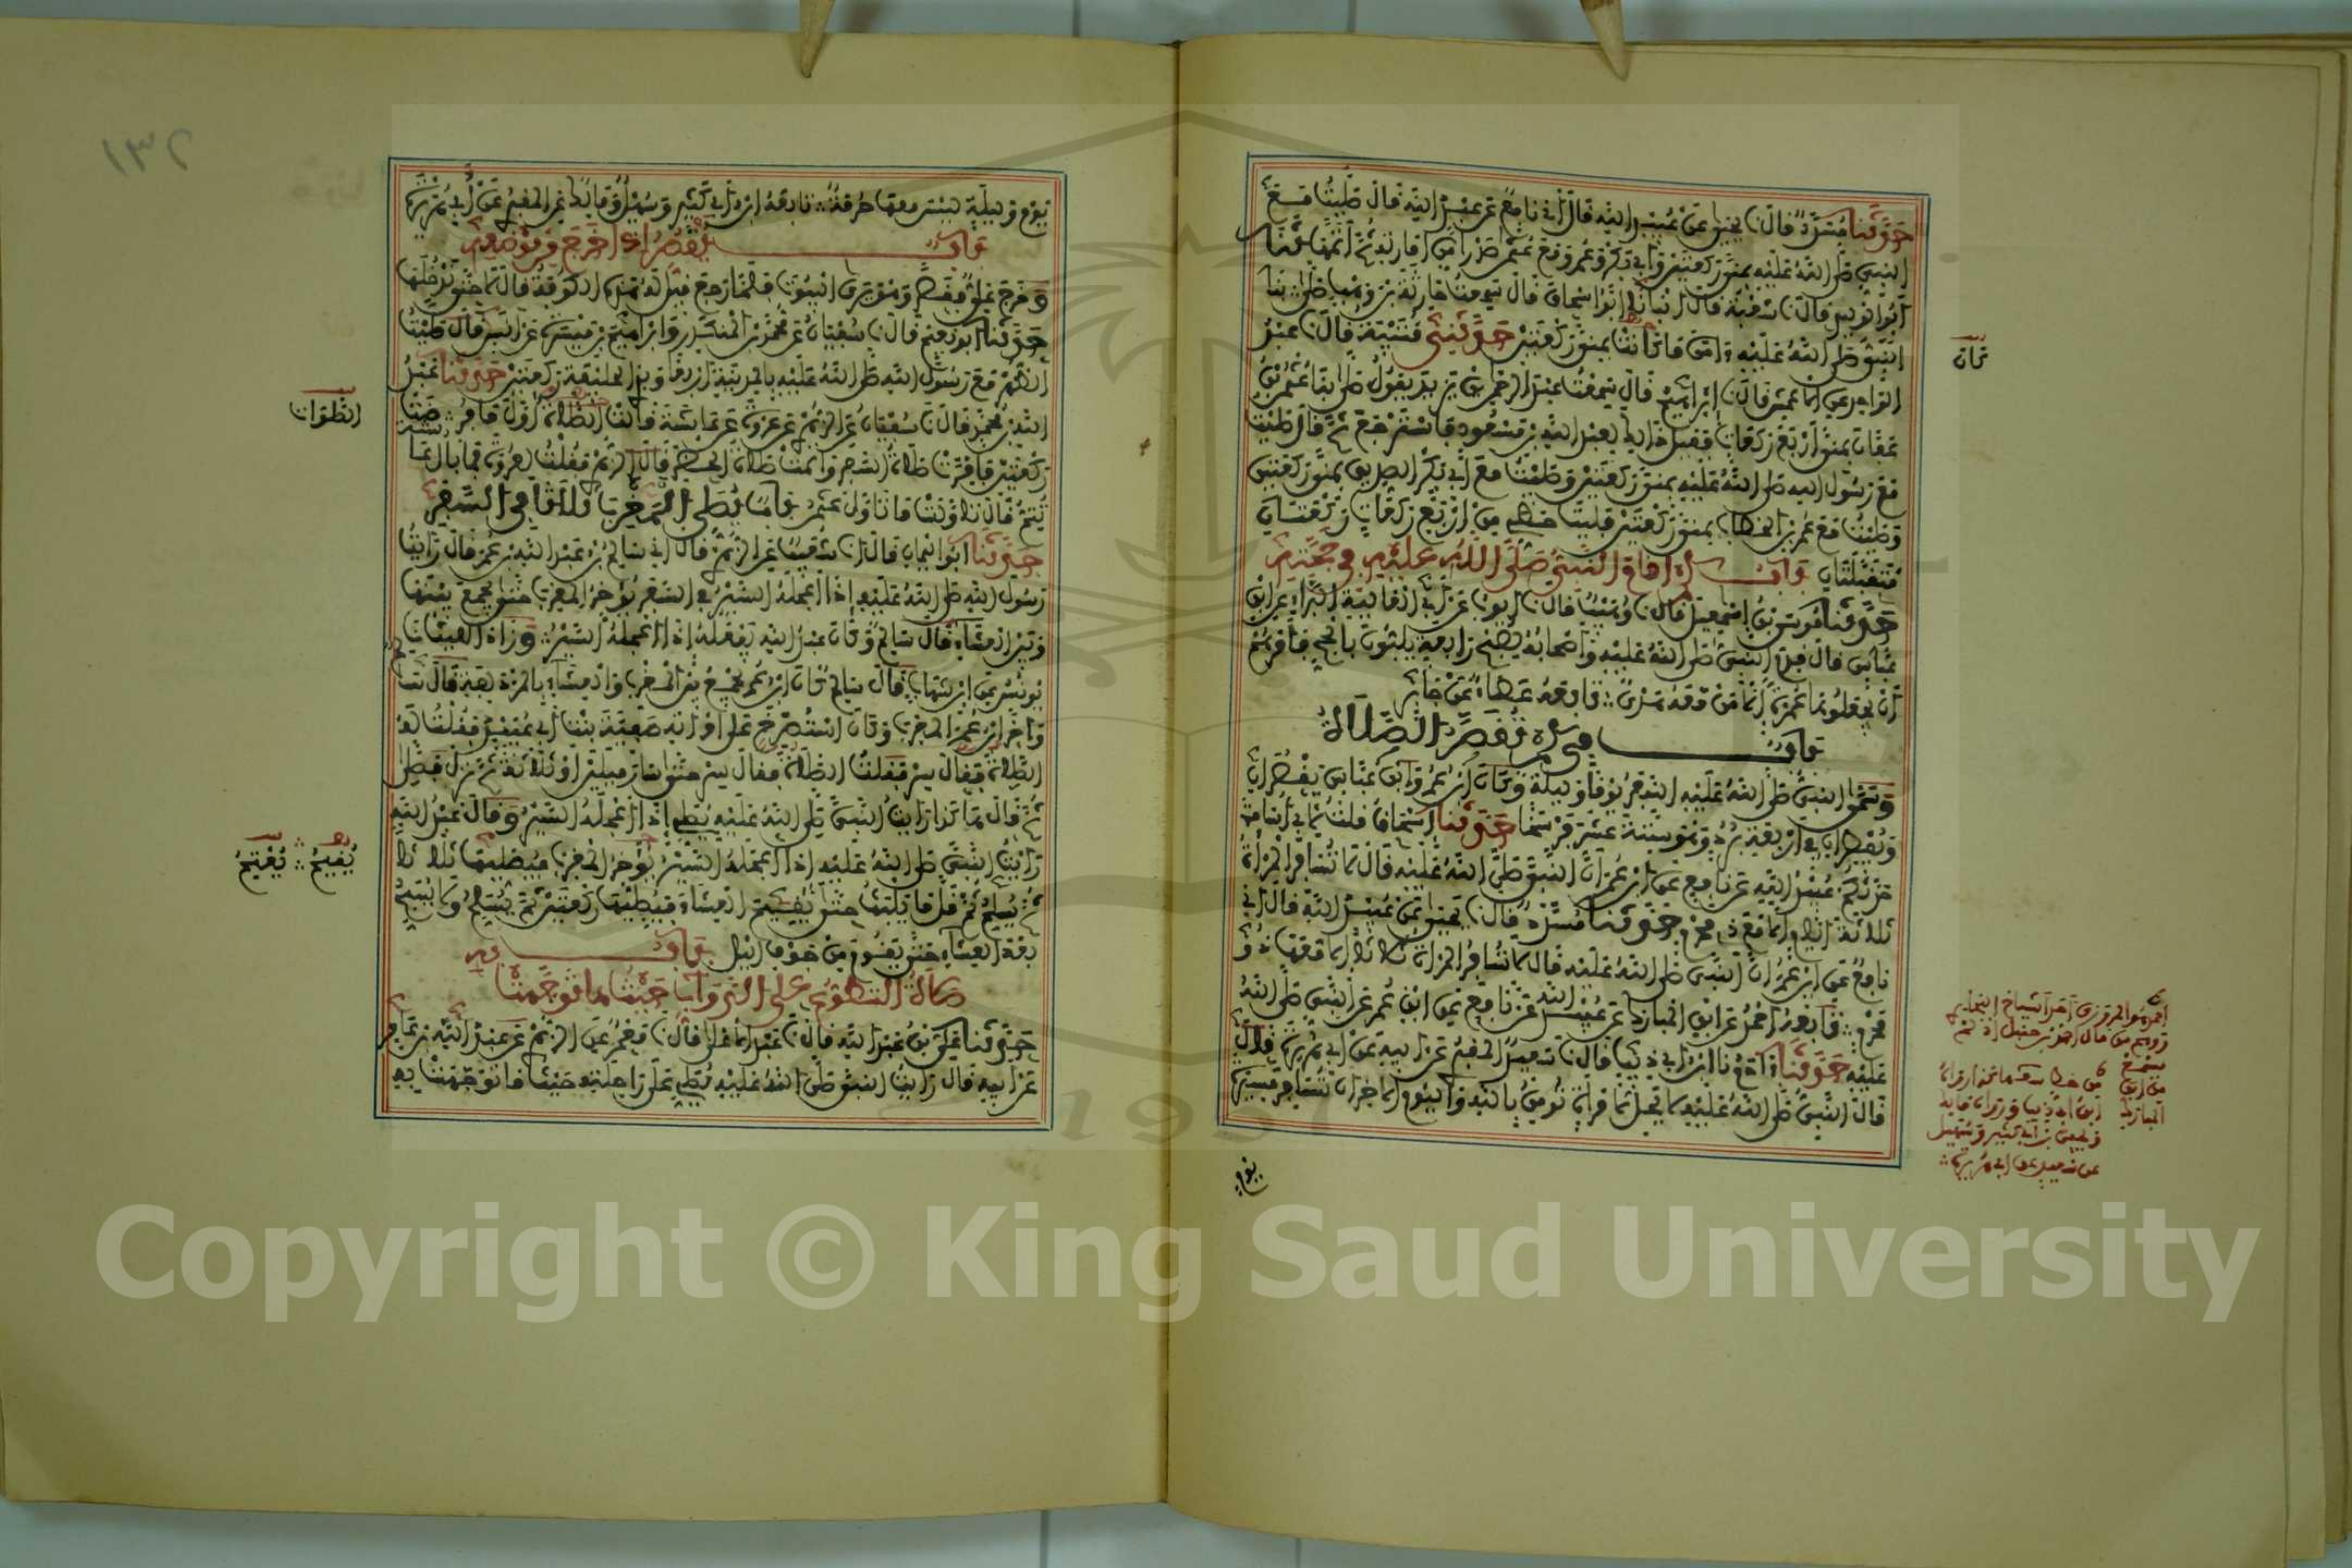 حدثنا مسدد قال نا يحيى عن عبيد الله قال أخبرني نافع عن عبد الله قال صليت مع
النبي صلى الله عليه بمنى ركعتين وأبي بكر وعمر ومع عثمان صدرا من إمارته ثم أتمها حدثنا
أبو الوليد قال نا شعبة قال أنبأنا أبو إسحاق قال سمعت حارثة بن وهب صلى بنا
النبي صلى الله عليه آمن ما كانت بمنى ركعتين حدثني قتيبة قال نا عبد
الواحد عن الأعمش قال نا إبراهيم قال سمعت عبد الرحمن بن يزيد يقول صلى بنا عثمان بن
عفان بمنى أربع ركعات فقيل ذلك لعبد الله بن مسعود فاسترجع ثم قال صليت
مع رسول الله صلى الله عليه بمنى ركعتين وصليت مع أبي بكر الصديق بمنى ركعتين
وصليت مع عمر بن الخطاب بمنى ركعتين فليت حظي من أربع ركعات ركعتان
متقبلتان باب كم أقام النبي صلى الله عليه في حجته
حدثنا موسى بن إسمعيل قال نا وهيب قال نا أيوب عن أبي العالية البراء عن ابن
عباس قال قدم النبي صلى الله عليه وأصحابه لصبح رابعة يلبون بالحج فأمرهم
أن يجعلوها عمرة إلا من معه هدي تابعه عطاء عن جابر
باب في كم تقصر الصلاة
وسمى النبي صلى الله عليه السفر يوما وليلة وكان ابن عمر وابن عباس يقصران
ويفطران في أربعة برد وهو ستة عشر فرسخا حدثنا إسحاق قال قلت لأبي أسامة
حدثكم عبيد الله عن نافع عن ابن عمر أن النبي صلى الله عليه قال لا تسافر المرأة
ثلاثة إلا مع ذي محرم حدثنا مسدد قال نا يحيى عن عبيد الله قال أخبرني
نافع عن ابن عمر أن النبي صلى الله عليه قال لا تسافر المرأة ثلاثا إلا معها ذو
محرم تابعه أحمد عن ابن المبارك عن عبيد الله عن نافع عن ابن عمر عن النبي صلى الله
عليه حدثنا آدم نا ابن أبي ذئب قال نا سعيد المقبري عن أبيه عن أبي هريرة قال
قال النبي صلى الله عليه لا يحل لامرأة تؤمن بالله واليوم الآخر أن تسافر مسيرة
يوم
كان
المبارك
يوم وليلة ليس معها حرمة تابعه ابن أبي كثير وسهيل ومالك عن المقبري عن أبي هريرة
باب يقصر إذا خرج من موضعه
وخرج علي فقصر وهو يرى البيوت فلما رجع قيل له هذه الكوفة قال لا حتى ندخلها
حدثنا أبو نعيم قال نا سفيان عن محمد بن المنكدر وإبراهيم بن ميسرة عن أنس قال صليت
الظهر مع رسول الله صلى الله عليه بالمدينة أربعا وبذي الحليفة ركعتين حدثنا عبد
الله بن محمد قال نا سفيان عن الزهري عن عروة عن عائشة قالت الصلاة أول ما فرضت
ركعتين فأقرت صلاة السفر وأتمت صلاة الحضر قال الزهري فقلت لعروة فما بال عائشة
تتم قال تأولت ما تأول عثمان باب يصلي المغرب ثلاثا في السفر
حدثنا أبو اليمان قال نا شعيب عن الزهري قال أخبرني سالم عن عبد الله بن عمر قال رأيت
رسول الله صلى الله عليه إذا أعجله السير في السفر يؤخر المغرب حتى يجمع بينها
وبين العشاء قال سالم وكان عبد الله يفعله إذا أعجله السير وزاد الليث قال حدثني
يونس عن ابن شهاب قال سالم كان ابن عمر يجمع بين المغرب والعشاء بالمزدلفة قال سالم
وأخر ابن عمر المغرب وكان استصرخ على امرأته صفية بنت أبي عبيد فقلت له
الصلاة فقال سر فقلت الصلاة فقال سر حتى سار ميلين أو ثلاثة ثم نزل فصلى
ثم قال هكذا رأيت النبي صلى الله عليه يصلي إذا أعجله السير وقال عبد الله
رأيت النبي صلى الله عليه إذا أعجله السير يؤخر المغرب فيصليها ثلاثا
ثم يسلم ثم قل ما يلبث حتى يقيم العشاء فيصليها ركعتين ثم يسلم ولا يسبح
بعد العشاء حتى يقوم من جوف الليل باب
صلاة التطوع على الدواب حيث ما توجهت
حدثنا علي بن عبد الله قال نا عبد الأعلى قال نا معمر عن الزهري عن عبد الله بن عامر
عن أبيه قال رأيت النبي صلى الله عليه يصلي على راحلته حيث ما توجهت به
الصلوات
يقيم يعتم
١٣٢
Copyright © King Saud University